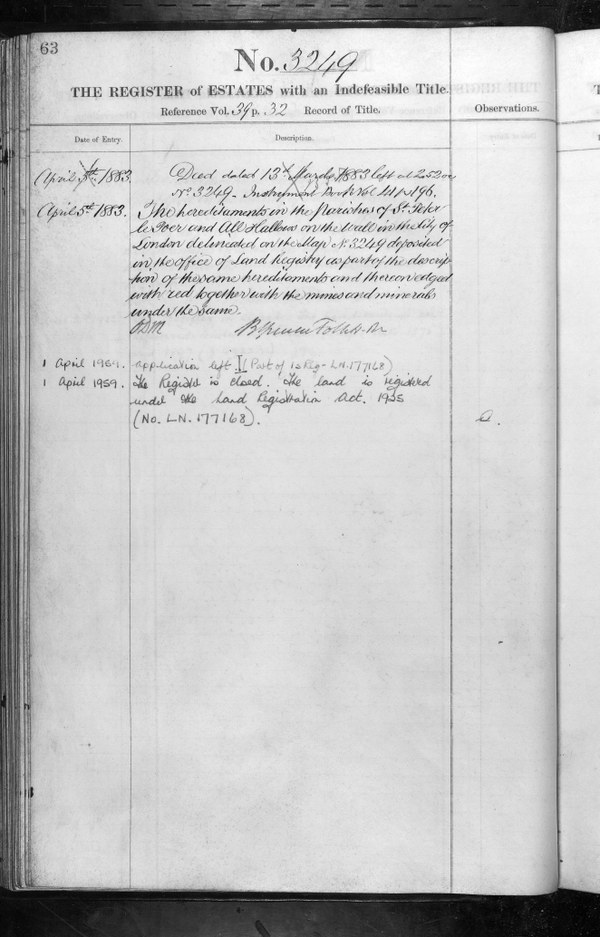 63
No. 3249
THE REGISTER of ESTATES with an Indefeasible Title.
Reference Vol. 39 p. 32 Record of Title.
Observations.
Date of Entry.
Description.
April 5th 1883. Deed dated 13th March 1883 left at 2.52
No. 3249. Instrument Book Vol 41 p 196.
April 5th 1883. The hereditaments in the Parishes of St. Peter
le Poer and All Hallows on the Wall in the City of
London delineated on the Map No. 3249 deposited
in the office of Land Registry as part of the descrip-
tion of the same hereditaments and thereon edged
with red together with the mines and minerals
under the same.
1 April 1959. Application left (Part of 1s Reg- LN.177168)
1 April 1959. The Register is closed. The land is registered
under the Land Registration Act. 1925
(No. LN. 177168).